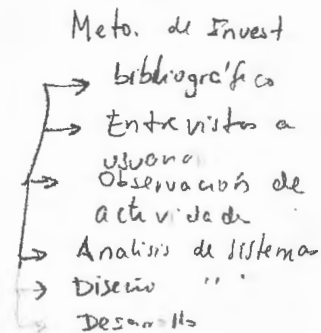 Meto. de Invest
→ bibliográfico
→ Entrevistas a
usuario
→ Observación de
actividade
→ Analisis de sistemas
→ Diseño " "
→ Desarrollo